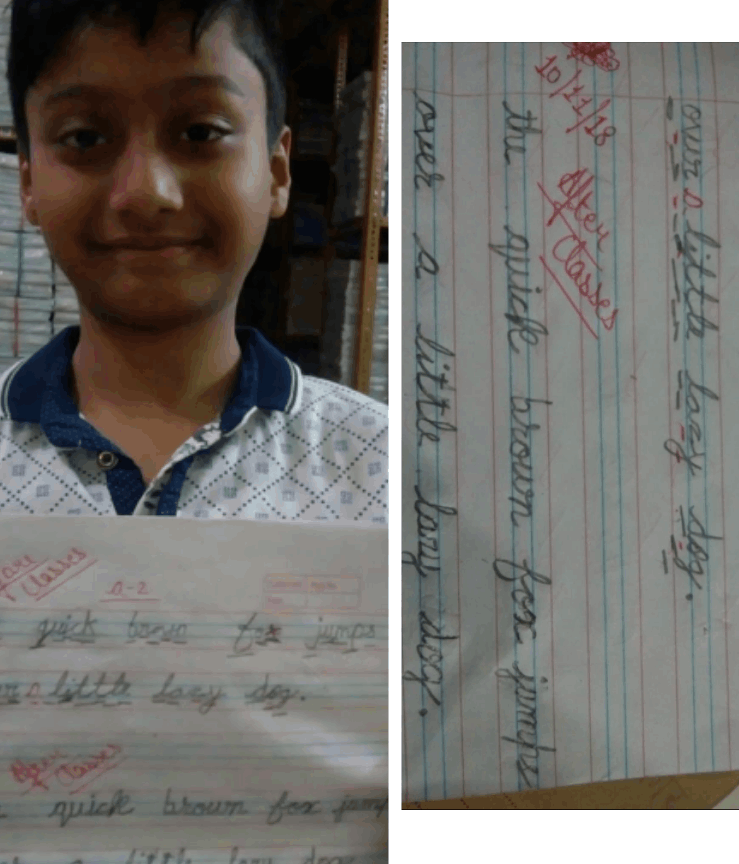 Classes
A-2
quick brown fox jumps
a little lazy dog.
After
Classes
quick brown fox jump
a little lazy dog
over a little lazy dog.
10/11/18
After
Classes
the quick brown fox jumps
over a little lazy dog.